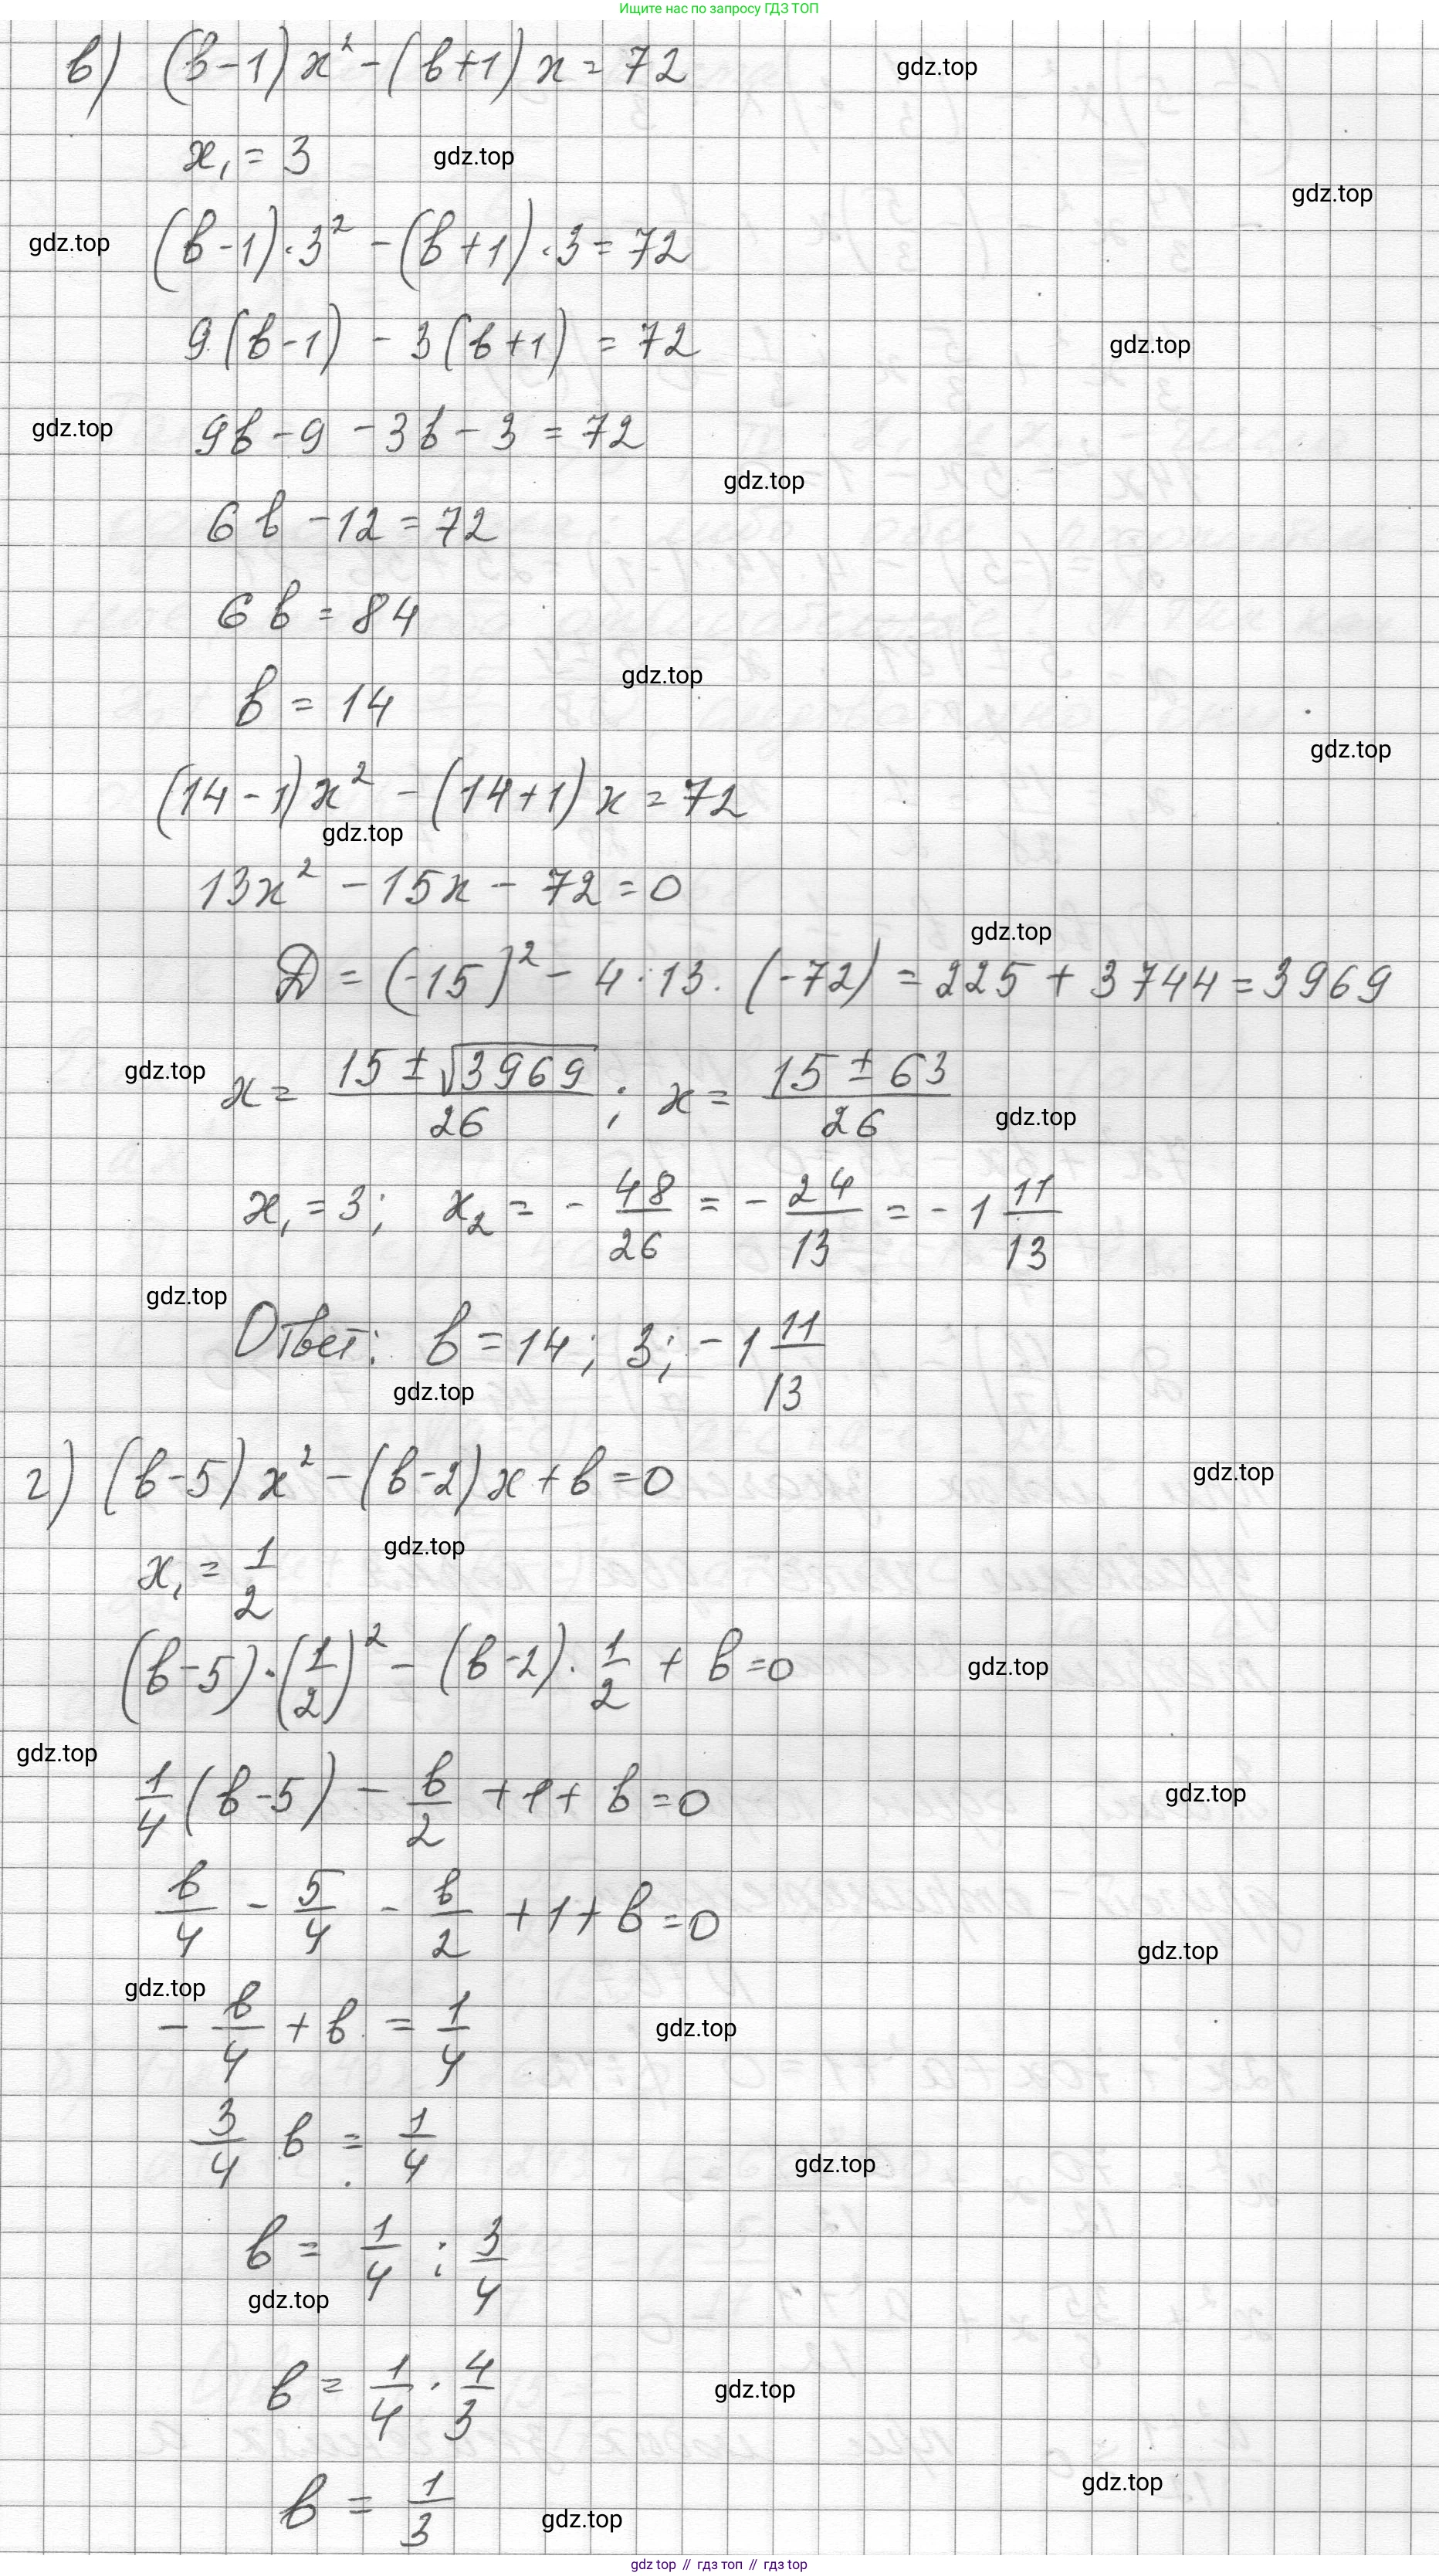 Ищите нас по запросу ГДЗ ТОП
в) (в-1)x² - (в+1)x = 72
gdz.top
x₁ = 3
gdz.top
gdz.top
gdz.top
(в-1)·3² - (в+1)·3 = 72
9(в-1) - 3(в+1) = 72
gdz.top
gdz.top
9в - 9 - 3в - 3 = 72
gdz.top
6в - 12 = 72
6в = 84
gdz.top
в = 14
gdz.top
(14-1)x² - (14+1)x = 72
gdz.top
13x² - 15x - 72 = 0
gdz.top
D = (-15)² - 4·13·(-72) = 225 + 3744 = 3969
gdz.top
x = (15 ± √3969)/26 ; x = (15 ± 63)/26
gdz.top
x₁ = 3; x₂ = - 48/26 = - 24/13 = -1 11/13
gdz.top
Ответ: в = 14; 3; -1 11/13
gdz.top
г) (в-5)x² - (в-2)x + в = 0
gdz.top
x₁ = 1/2
gdz.top
(в-5)·(1/2)² - (в-2)·1/2 + в = 0
gdz.top
gdz.top
1/4(в-5) - в/2 + 1 + в = 0
gdz.top
в/4 - 5/4 - в/2 + 1 + в = 0
gdz.top
gdz.top
- в/4 + в = 1/4
gdz.top
3/4 в = 1/4
gdz.top
в = 1/4 : 3/4
gdz.top
в = 1/4 · 4/3
gdz.top
gdz.top
в = 1/3
gdz.top
gdz top // гдз топ // гдз top